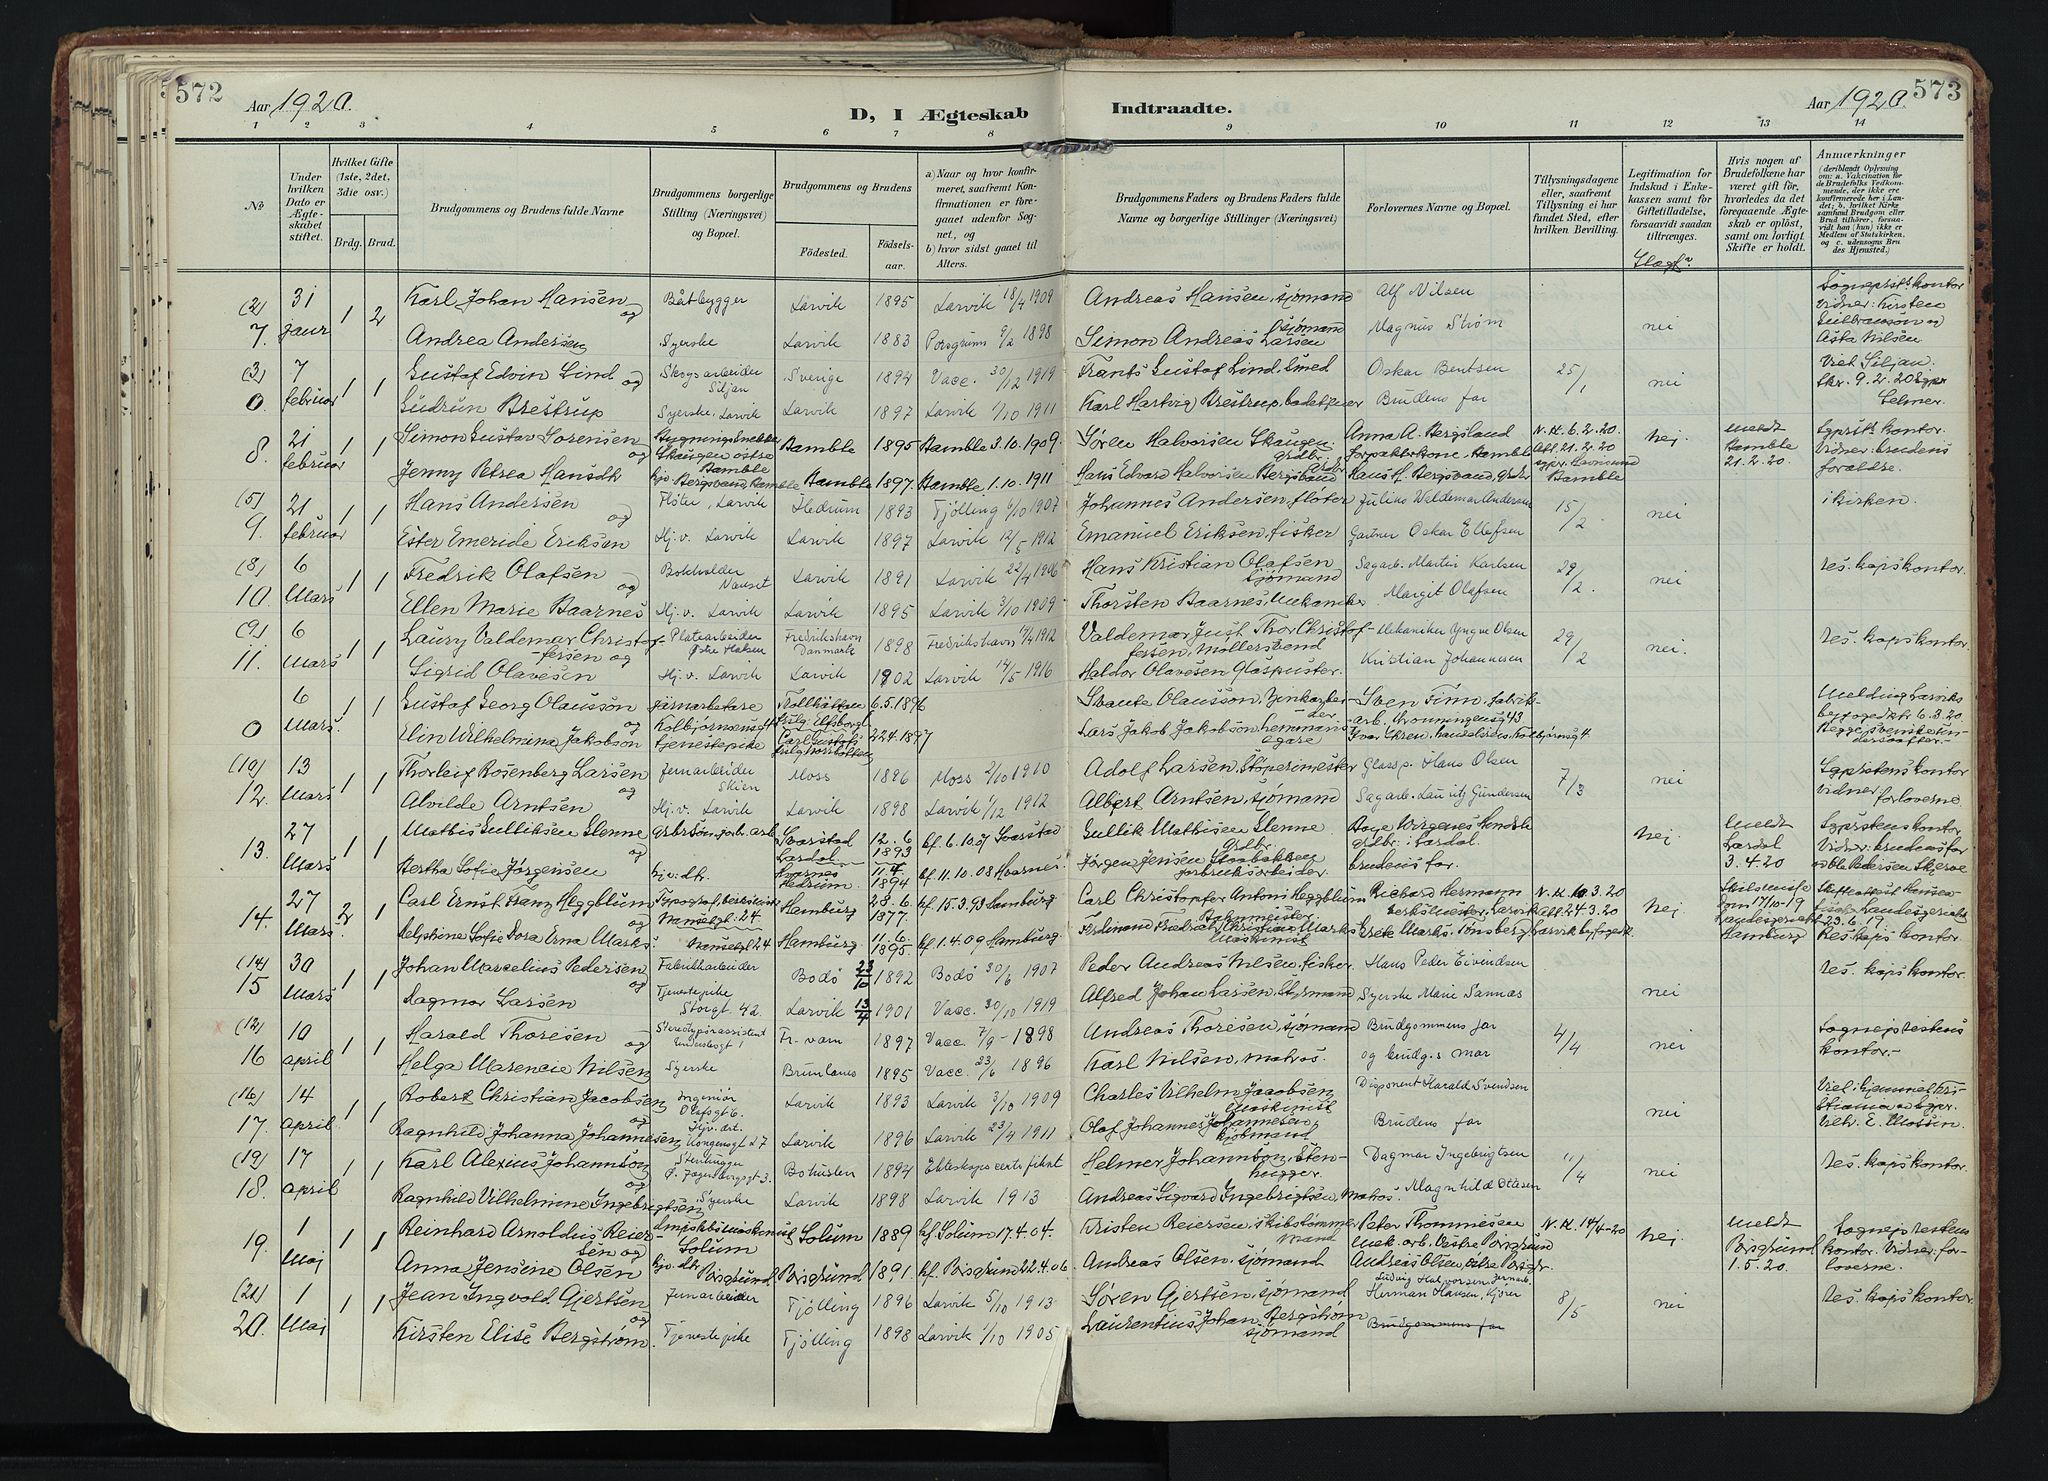 572
Aar 1920.
D, I Ægteskab Indtraadte.
Aar 1920.
573
1 2 3 4 5 6 7 8 9 10 11 12 13 14
No
Under hvilken Dato er Ægteskabet stiftet.
Hvilket Gifte (1ste, 2det, 3die osv.)
Brdg. Brud.
Brudgommens og Brudens fulde Navne
Brudgommens borgerlige Stilling (Næringsvei) og Bopæl.
Brudgommens og Brudens
Fødested.
Fødselsaar.
a) Naar og hvor konfirmeret, saafremt Konfirmationen er foregaaet udenfor Sognet, og
b) hvor sidst gaaet til Alters.
Brudgommens Faders og Brudens Faders fulde Navne og borgerlige Stillinger (Næringsvei)
Forlovernes Navne og Bopæl.
Tillysningsdagene eller, saafremt Tillysning ei har fundet Sted, efter hvilken Bevilling.
Legitimation for Indskud i Enkekassen samt for Giftetilladelse, forsaavidt saadan tiltrænges.
Hvis nogen af Brudefolkene har været gift før, hvorledes da det foregaaende Ægteskab er opløst, samt om lovligt Skifte er holdt.
Anmærkninger
(deriblandt Oplysning om: a. Vakcination for de Brudefolks Vedkommende, der ikke ere konfirmerede her i Landet; b. hvilket Kirkesamfund Brudgom eller Brud tilhører, forsaavidt han (hun) ikke er Medlem af Statskirken, og c. udensogns Brudes Hjemsted.)
(2) 31 1 2 Karl Johan Hansen og Båtbygger Larvik 1895 Larvik 18/4 1909 Andreas Hansen, sjømand Alf Nilsen
7. januar Andrea Andersen Syerske Larvik 1883 Porsgrunn 9/2 1898 Simon Andreas Larsen sjømand Magnus Strøm nei Asta Nilsen
(3) 7 1 1 Gustaf Edvin Lind og Skogsarbeider Siljan Sverige 1894 Vacc. 30/12 1919 Frants Gustaf Lind, smed Oskar Bentsen 25/1 nei Viet Siljan
0 februar Gudrun Brestrup Syerske, Larvik Larvik 1897 Larvik 1/10 1911 Karl Hartvig Brestrup, badetjener Brudens far
8. 21 februar 1 1 Simon Gustav Sørensen og Skaugen østre Bamble Bamble 1895 Bamble 3.10.1909. Søren Halvorsen Skaugen. grdbr. Anna A. Bergsland forpakterkone, Bamble N.H. 6.2.20. Att. 21.2.20 nej. Meldt Bamble 21.2.20. Vidner: brudens forældre.
Jenny Petrea Hansdtr Bamble 1897. Bamble 1.10.1911 Hans Edvard Halvorsen Bergsland Bamble
(5) 21 1 1 Hans Andersen og Fløter, Larvik Hedrum 1893 Tjølling 6/10 1907 Johannes Andersen, fløter Julius Waldemar Andersen 15/2 nei i kirken.
9. februar Ester Emeride Eriksen Hj.v. Larvik Larvik 1897 Larvik 12/5 1912 Emanuel Eriksen, fisker Gartner Oskar Ellefsen
(8) 6 1 1 Fredrik Olafsen og Bokholder Larvik 1891 Larvik 22/4 1906 Hans Kristian Olafsen sjømand Sagarb. Martin Karlsen 29/2 nei res. kaps kontor.
10. Mars Ellen Marie Baarnes Hj.v. Larvik Larvik 1895 Larvik 3/10 1909 Thorsten Baarnes, Mekaniker Margit Olafsen
(9) 6 1 1 Laury Valdemar Christoffersen og Platearbeider Fredrikshavn Danmark 1898 Fredrikshavn 14/4 1912 Valdemar Just Thor Christoffersen, Møllersvend Mekaniker Yngve Olsen 29/2 nei. res. kaps kontor.
11. Mars Sigrid Olavesen Hj.v. Larvik Larvik 1902 Larvik 14/5 1916 Haldor Olavesen Glaspuster. Kristian Johannesen
6 1 1 Gustaf Georg Olausson og järnarbetare Trollhättan 6.5.1896 Svante Olausson, Sven Finn,
0 Mars. Elin Wilhelmina Jakobson tjenestepike 22.4.1897 Lars Jakob Jakobsson, hemmansegare
(10) 13 1 1 Thorleif Rosenberg Larsen og Jernarbeider Skien Moss 1896 Moss 2/10 1910 Adolf Larsen, Støperimester Glassp. Hans Olsen 7/3 nei Sgprstens kontor
12. Mars Alvilde Arntsen Hj.v. Larvik Larvik 1898 Larvik 1/12 1912 Albert Arntsen, sjømand Sagarb. Lauritz Gundersen vidner forloverne.
13. 27 Mars 1 1 Mathis Gulliksen Glenne og Svarstad Lardal 12.6 1893 kf. 6.10.07 Svarstad Gullik Mathisen Glenne grdbr. nej Meldt Lardal 3.4.20 Sgprstens kontor Vidner: brudens far
Bertha Sofie Jørgensen hjv. dtr. Kvarnes Hedrum. 11.7 1894 kf. 11.10.08 Hvarnes. Jørgen Jensen brudens far.
14. 27 Mars. 2 1 Carl Ernst Franz Heggblum og Hamburg 28.6. 1877. kf. 15.3.93 Hamburg Carl Christopher Antoni Heggblum Richard Hermann N.H. 10.3.20 att. 24.3.20 nej. Hamburg
Delphine Sofie Dora Erna Marks. Hamburg 11.6. 1895. kf. 1.4.09 Hamburg. Ferdinand Fredrich Christian Marks Maskinist Grete Marks. Tønsberg. Res. kaps kontor.
(14) 30 1 1 Johan Marcelius Pedersen og Fabrikkarbeider Bodø 23/10 1892 Bodø 30/6 1907 Peder Andreas Nilsen, fisker Hans Peder Eivindsen res. kaps kontor.
15 Mars Dagmar Larsen Tjenestepike Storgt. 42. Larvik 13/4 1901 Vacc. 30/10 1919 Alfred Johan Larsen, Styrmand Syerske Marie Sannæs nei
(12) 10 1 1 Harald Thoresen og Fr.værn 1897 Vacc. 7/9 - 1898 Andreas Thoresen, sjømand Brudgommens far 4/4 nei Sogneprestens kontor.
16 april Helga Marencie Nilsen Syerske Brunlanes 1895 Vacc. 23/6 1896 Karl Nilsen, matros. og brudg.s mor
(16) 14 1 1 Robert Christian Jacobsen og Ingeniør Olafsgt 6. Larvik 1893 Larvik 3/10 1909 Charles Vilhelm Jacobsen Maskinist Disponent Harald Svendsen nei
17. april Ragnhild Johanna Johannesen Kongensgt 27 Larvik 1896 Larvik 23/4 1911 Olaf Johannes Johannesen, kjøbmand Brudens far
(19) 17 1 1 Karl Alexius Johannson og Stenhugger Bohuslen 1894 Ekteskapscertifikat Helmer Johannson, Stenhugger. Dagmar Ingebrigtsen 11/4 nei res. kaps kontor
18. april Ragnhild Vilhelmine Ingebrigtsen Syerske Larvik 1898 Larvik 1913 Andreas Sigvard Ingebrigtsen, Matros. Magnhild Ottesen
19. 1 Maj 1 1 Reinhard Arnoldus Reiersen og Solum Solum 1889 kf. Solum 17.4.04. Kristen Reiersen, Peter Thommesen Mek. arb. Vestre Porsgrund N.H. 14/4-20 nej. Meldt Porsgrund 1.5.20. Sogneprestens kontor. Vidner: forloverne.
Anna Jensine Olsen hjv. dtr. Porsgrund. Porsgrund 1891. kf. Porsgrund 22.4.06. Andreas Olsen, sjømand Andreas Olsen,
(21) 1 1 1 Jean Ingvold Gjertsen og Jernarbeider Tjølling 1896 Larvik 5/10 1913 Søren Gjertsen, sjømand Ludvig Halvorsen Jernarb. Herman Hansen, Kjører 8/5 nei res. kaps kontor.
20. Maj Kirsten Elise Bergstrøm. Tjenestepike Tjølling 1898 Larvik 1/10 1905 Laurentius Johan Bergstrøm sjømand Brudgommens far